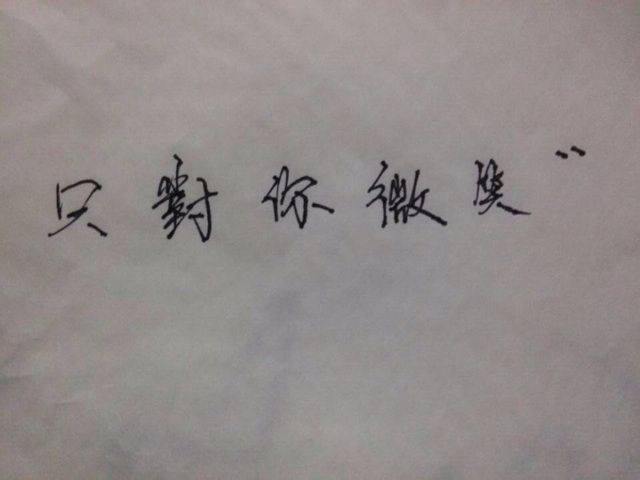 只對你微笑¨